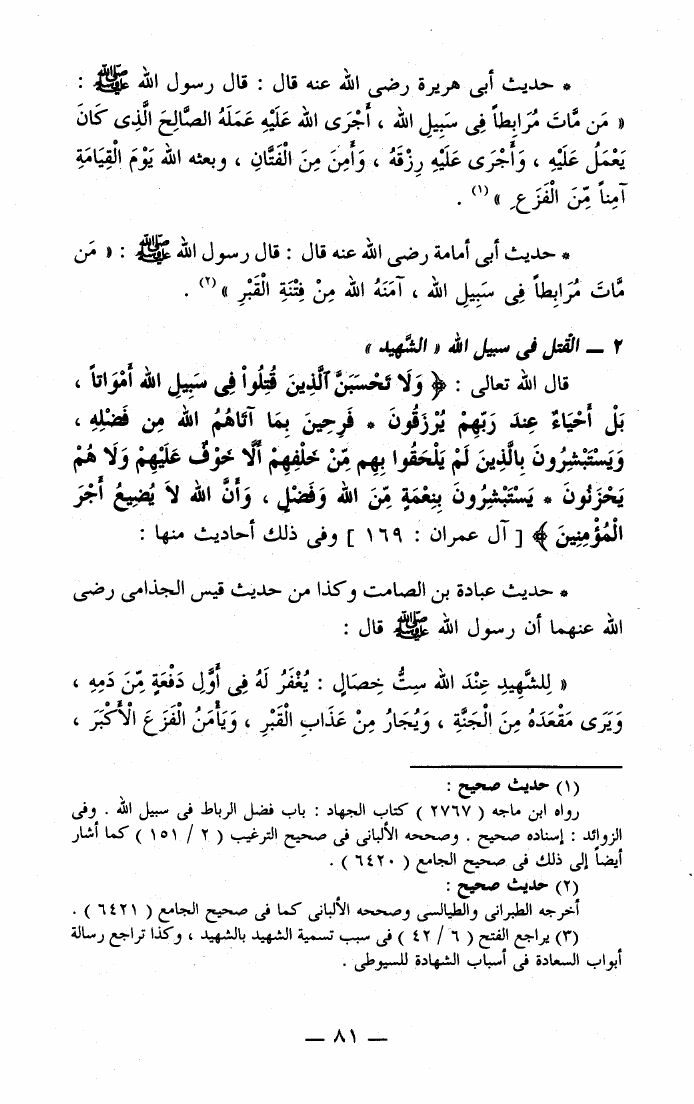 * حديث أبى هريرة رضى الله عنه قال : قال رسول الله ﷺ :
« مَن مَّاتَ مُرَابِطاً فِى سَبِيلِ الله ، أَجْرَى الله عَلَيْهِ عَمَلَهُ الصَّالِحَ الَّذِى كَانَ
يَعْمَلُ عَلَيْهِ ، وَأَجْرَى عَلَيْهِ رِزْقَهُ ، وَأَمِنَ مِنَ الْفَتَّانِ ، وبعثه الله يَوْمَ الْقِيَامَةِ
آمِناً مِّنَ الْفَزَعِ » (١) .
* حديث أبى أمامة رضى الله عنه قال : قال رسول الله ﷺ : « مَن
مَّاتَ مُرَابِطاً فِى سَبِيلِ الله ، آمَنَهُ الله مِنْ فِتْنَةِ الْقَبْرِ » (٢) .
٢ ــ القَتل فى سبيل الله « الشَّهيد »
قال الله تعالى : ﴿ وَلَا تَحْسَبَنَّ ٱلَّذِينَ قُتِلُواْ فِى سَبِيلِ الله أَمْوَاتاً ،
بَلْ أَحْيَاءٌ عِندَ رَبِّهِمْ يُرْزَقُونَ * فَرِحِينَ بِمَا آتَاهُمُ الله مِن فَضْلِهِ ،
وَيَسْتَبْشِرُونَ بِالَّذِينَ لَمْ يَلْحَقُوا بِهِم مِّنْ خَلْفِهِمْ أَلَّا خَوْفٌ عَلَيْهِمْ وَلَا هُمْ
يَحْزَنُونَ * يَسْتَبْشِرُونَ بِنِعْمَةٍ مِّنَ الله وَفَضْلٍ ، وَأَنَّ الله لاَ يُضِيعُ أَجْرَ
الْمُؤْمِنِينَ ﴾ [ آل عمران : ١٦٩ ] وفى ذلك أحاديث منها :
* حديث عبادة بن الصامت وكذا من حديث قيس الجذامى رضى
الله عنهما أن رسول الله ﷺ قال :
« لِلشَّهِيدِ عِنْدَ الله سِتُّ خِصَالٍ : يُغْفَرُ لَهُ فِى أَوَّلِ دَفْعَةٍ مِّنَ دَمِهِ ،
وَيَرَى مَقْعَدَهُ مِنَ الْجَنَّةِ ، وَيُجَارُ مِنْ عَذَابِ القَبْرِ ، وَيَأْمَنُ الْفَزَعَ الْأَكْبَرَ ،
(١) حديث صحيح :
رواه ابن ماجه ( ٢٧٦٧ ) كتاب الجهاد : باب فضل الرباط فى سبيل الله . وفى
الزوائد : إسناده صحيح . وصححه الألبانى فى صحيح الترغيب ( ٢ / ١٥١ ) كما أشار
أيضاً إلى ذلك فى صحيح الجامع ( ٦٤٢٠ ) .
(٢) حديث صحيح :
أخرجه الطبرانى والطيالسى وصححه الألبانى كما فى صحيح الجامع ( ٦٤٢١ ) .
(٣) يراجع الفتح ( ٦ / ٤٢ ) فى سبب تسمية الشهيد بالشهيد ، وكذا تراجع رسالة
أبواب السعادة فى أسباب الشهادة للسيوطى .
ــ ٨١ ــ